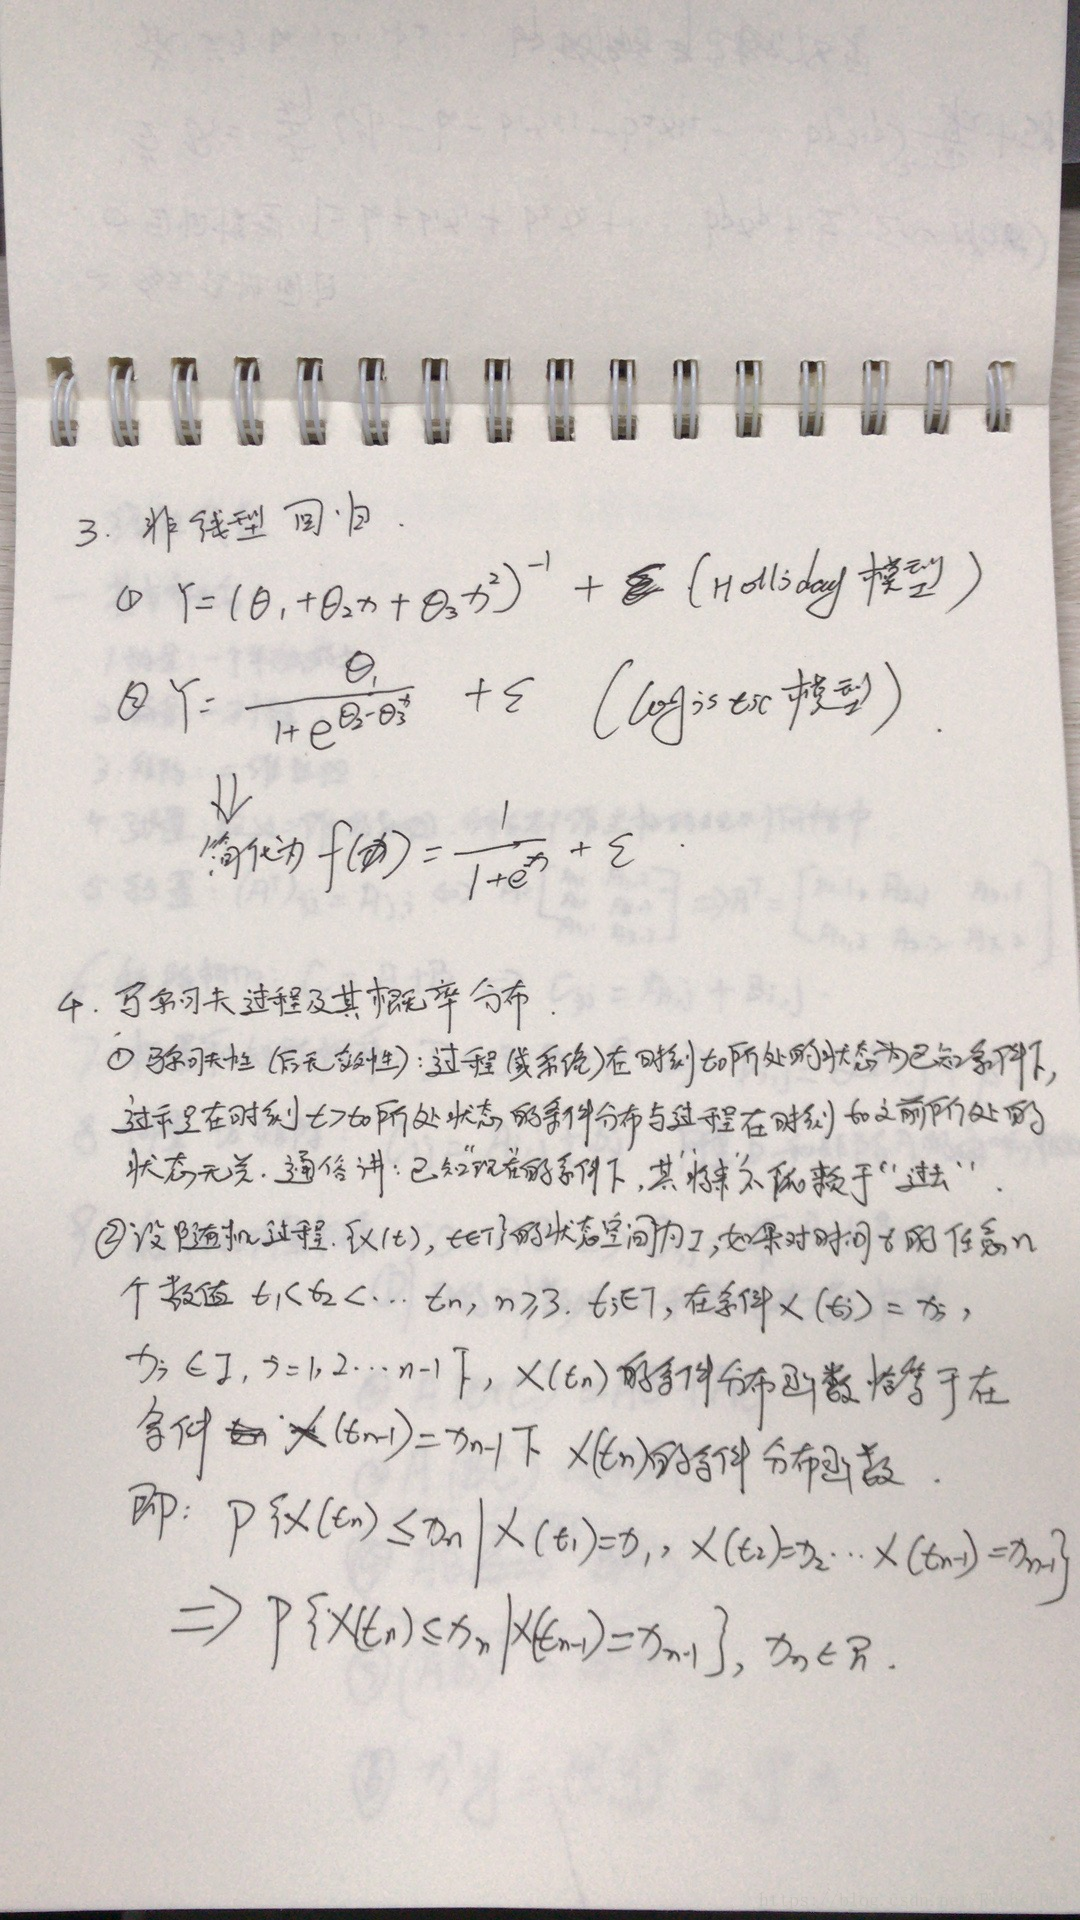 3. 非线型回归.
① Y=(θ₁+θ₂x+θ₃x²)⁻¹ + ε (Holliday模型)
② Y= θ₁/(1+e^(θ₂-θ₃x)) + ε (Logistic模型).
⇓
简化为 f(x) = 1/(1+e^x) + ε.
4. 马尔可夫过程及其概率分布.
① 马尔可夫性(后无效性): 过程(或系统)在时刻t₀所处的状态为已知条件下,
过程在时刻t>t₀所处状态的条件分布与过程在时刻t₀之前所处的
状态无关. 通俗讲: 已知"现在"的条件下, 其"将来"不依赖于"过去".
② 设随机过程{X(t), t∈T}的状态空间为I, 如果对时间t的任意n
个数值 t₁<t₂<⋯tₙ, n≥3. tᵢ∈T, 在条件X(tᵢ)=xᵢ,
xᵢ∈I, i=1,2⋯n-1下, X(tₙ)的条件分布函数恰等于在
条件 X(tₙ₋₁)=xₙ₋₁下 X(tₙ)的条件分布函数.
即: P{X(tₙ)≤xₙ|X(t₁)=x₁, X(t₂)=x₂⋯X(tₙ₋₁)=xₙ₋₁}
=> P{X(tₙ)≤xₙ|X(tₙ₋₁)=xₙ₋₁}, xₙ∈R.